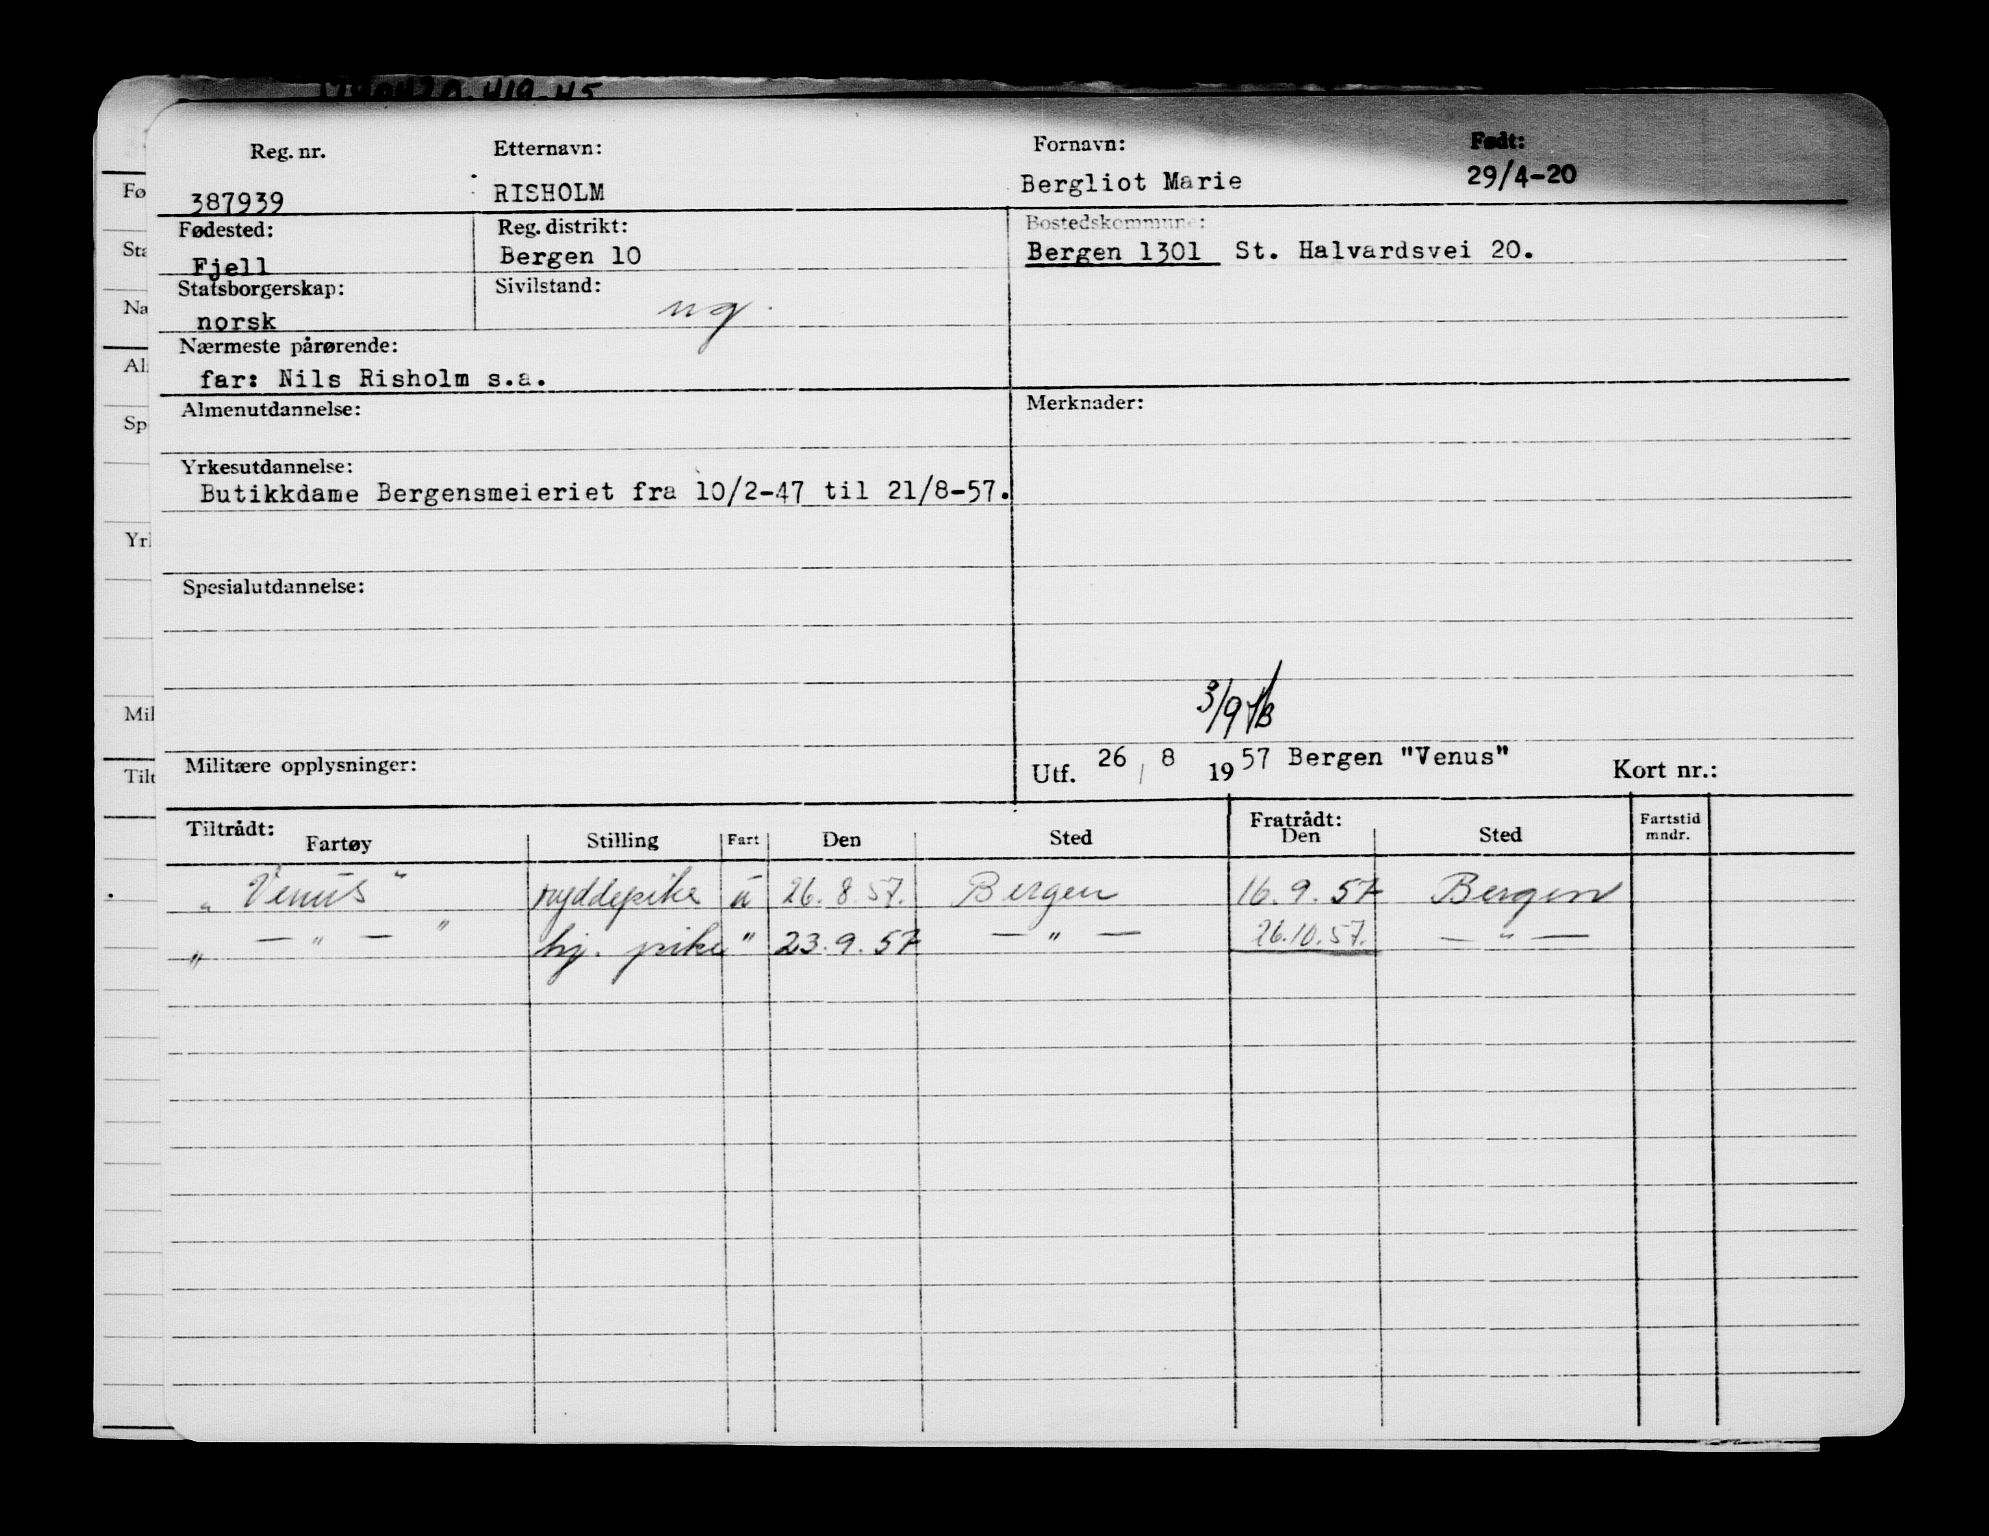 Reg. nr. Etternavn: Fornavn: Født:
387939 RISHOLM Bergliot Marie 29/4-20
Fødested: Reg. distrikt: Bostedskommune:
Fjell Bergen 10 Bergen 1301 St. Halvardsvei 20.
Statsborgerskap: Sivilstand:
norsk ug.
Nærmeste pårørende:
far: Nils Risholm s.a.
Almenutdannelse: Merknader:
Yrkesutdannelse:
Butikkdame Bergensmeieriet fra 10/2-47 til 21/8-57.
Spesialutdannelse:
3/9
Militære opplysninger: Utf. 26 / 8 1957 Bergen "Venus" Kort nr.:
Tiltrådt: Fratrådt: Fartstid
Fartøy Stilling Fart Den Sted Den Sted mndr.
„ Venus " ryddepike u 26.8.57. Bergen 16.9.57 Bergen
„ — " — " hj. pike " 23.9.57 — " — 26.10.57. — " —
Fø
Sta
Na
Al
Sp
Yrl
Mil
Tilt